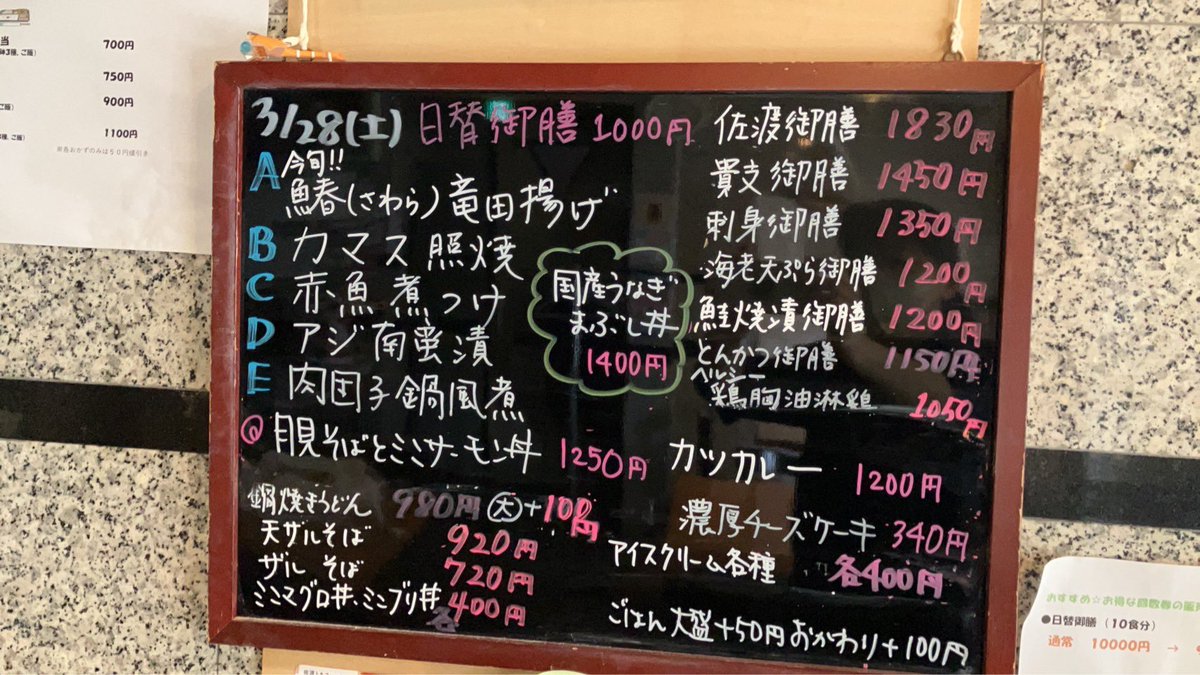 当
700円
750円
900円
1100円
3/28(土) 日替御膳 1000円
A 今旬!!
鰆(さわら)竜田揚げ
B カマス照焼
C 赤魚煮つけ
D アジ南蛮漬
E 肉団子鍋風煮
国産うなぎ
まぶし丼
1400円
佐渡御膳 1830円
貴支御膳 1450円
刺身御膳 1350円
海老天ぷら御膳 1200円
鮭焼漬御膳 1200円
とんかつ御膳 1150円
ヘルシー
鶏胸油淋鶏 1050円
Q 月見そばとミニサーモン丼 1250円
カツカレー 1200円
鍋焼きうどん 980円 大+100円
天ザルそば 920円
ザルそば 720円
ミニマグロ丼、ミニブリ丼 各400円
濃厚チーズケーキ 340円
アイスクリーム各種 各400円
ごはん大盛+50円おかわり+100円
おすすめ☆お得な回数券の
●日替御膳(10食分)
通常 10000円 →